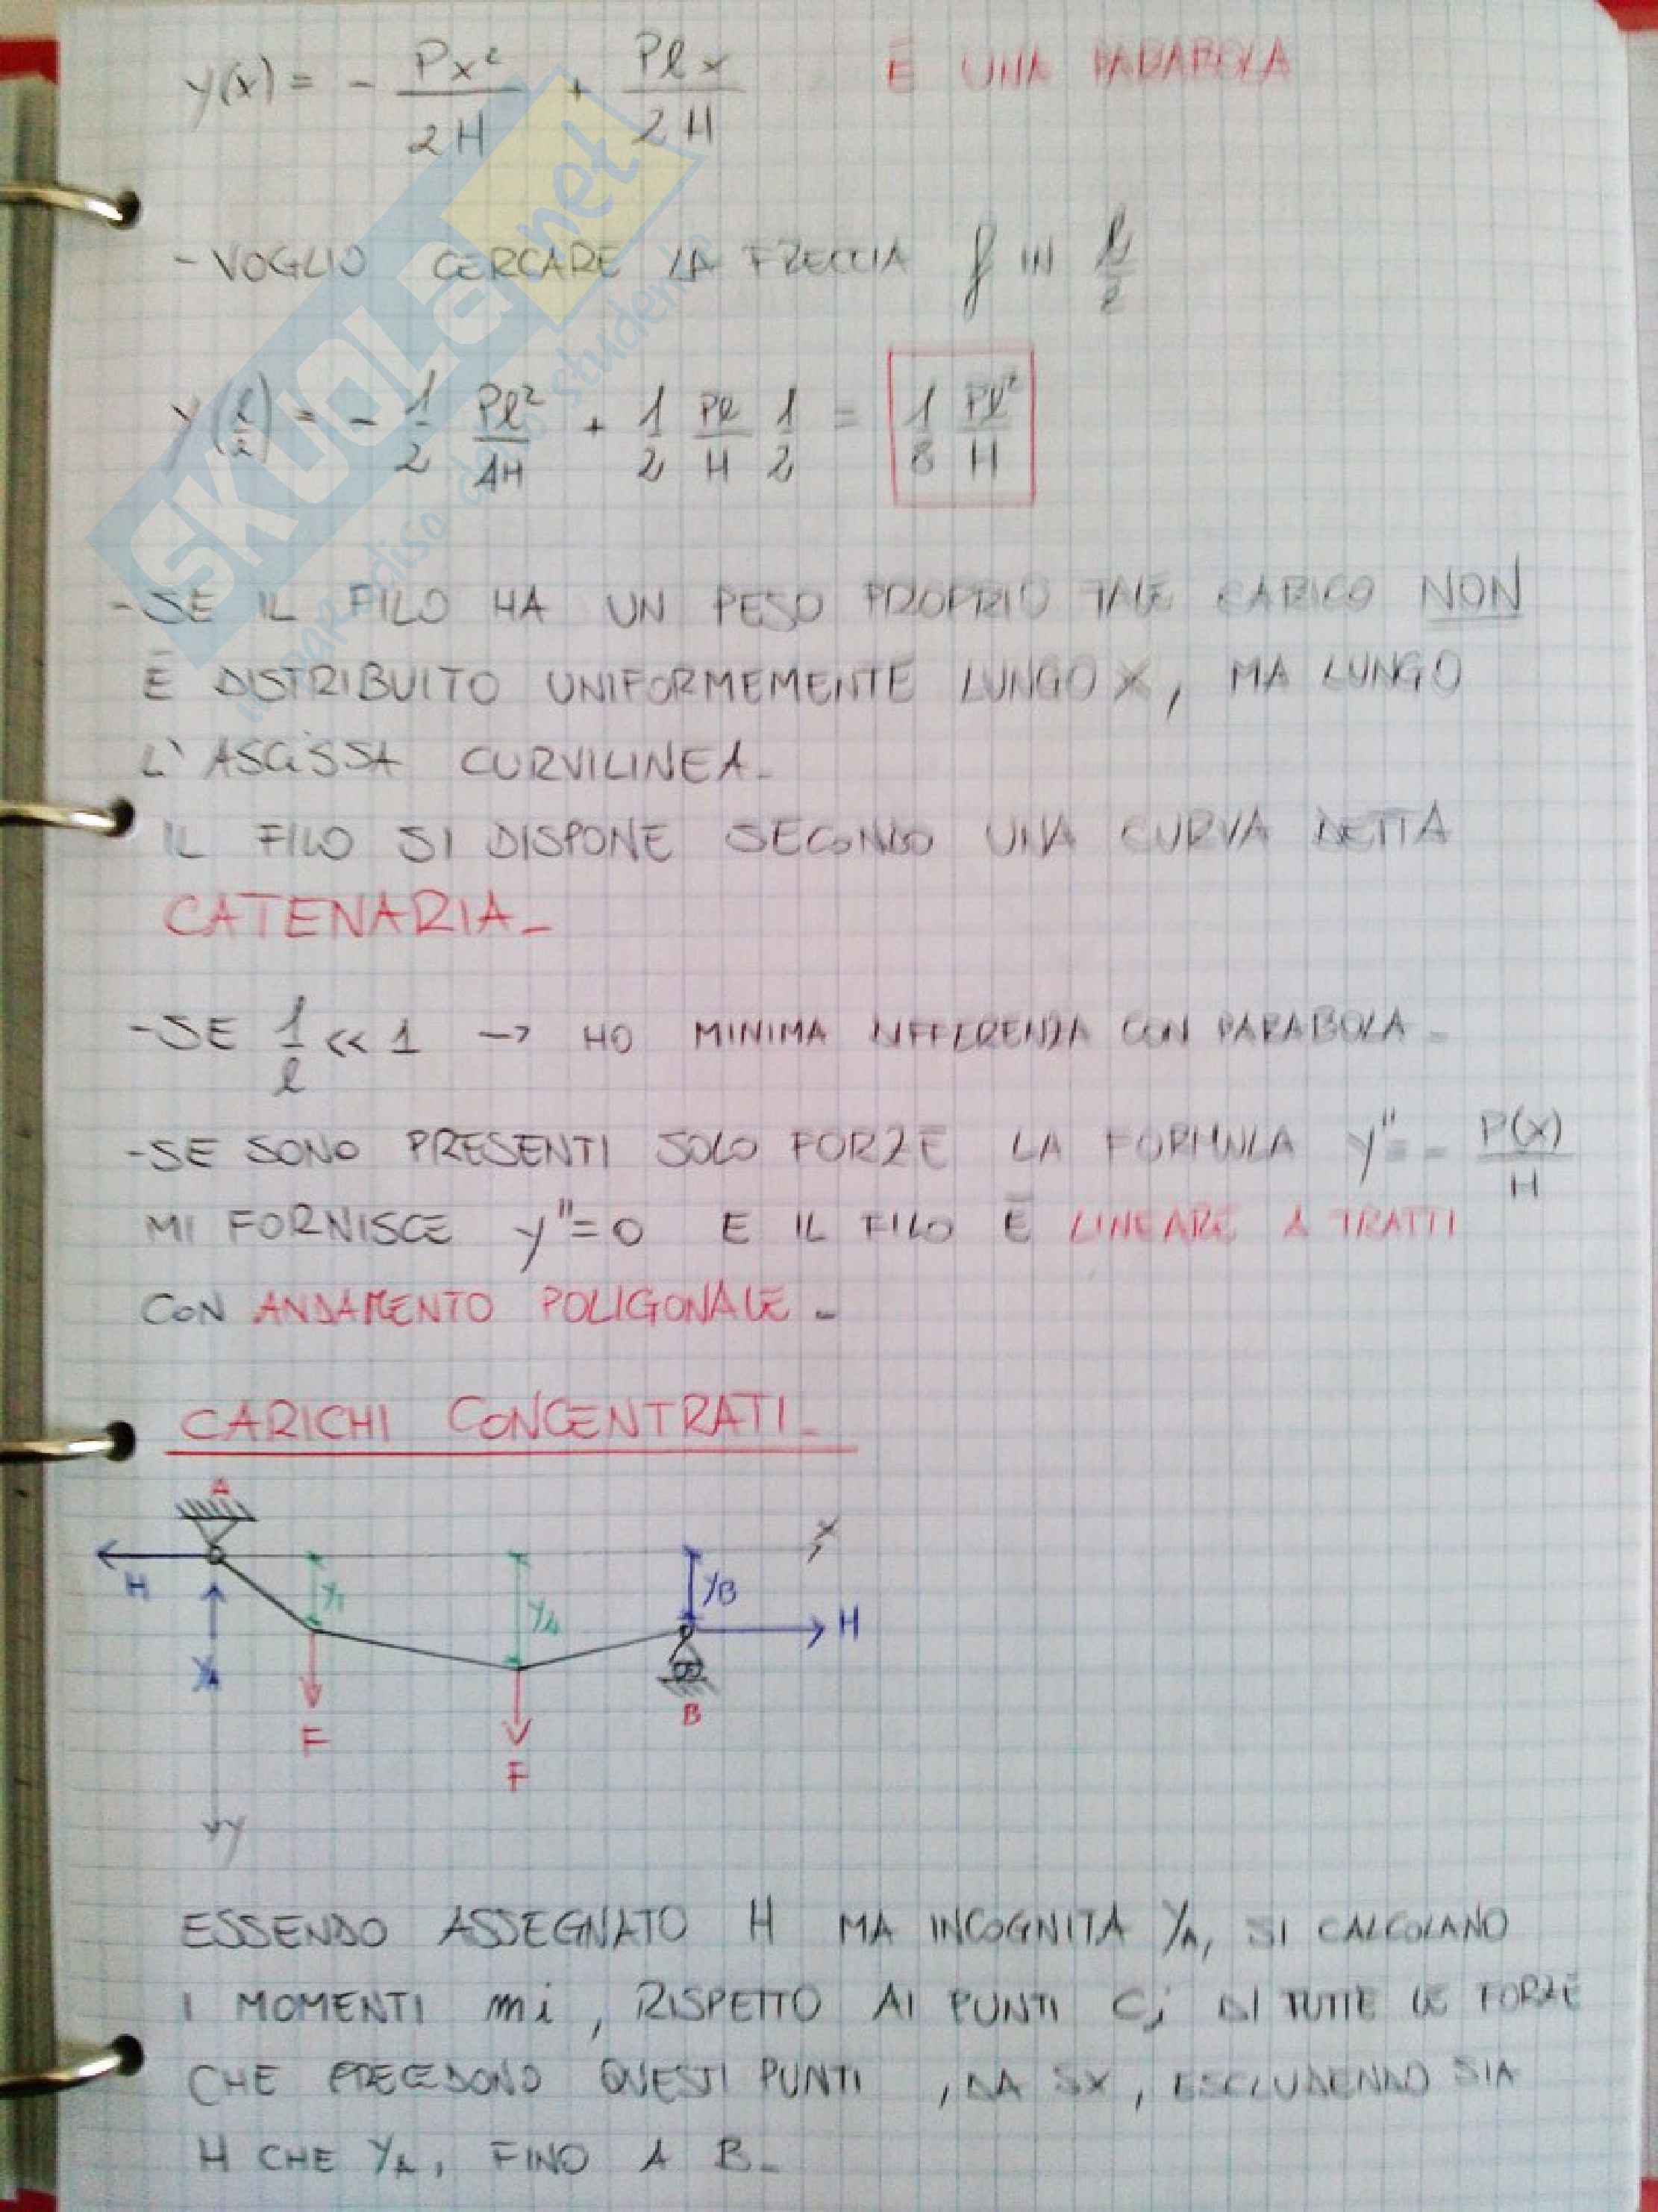 y(x) = - Px²/2H + Plx/2H È UNA PARABOLA
- VOGLIO CERCARE LA FRECCIA f IN l/2
y(l/2) = - 1/2 Pl²/4H + 1/2 Pl/H 1/2 = 1/8 Pl²/H
- SE IL FILO HA UN PESO PROPRIO TALE CARICO NON
È DISTRIBUITO UNIFORMEMENTE LUNGO X, MA LUNGO
L'ASCISSA CURVILINEA.
IL FILO SI DISPONE SECONDO UNA CURVA DETTA
CATENARIA.
- SE 1/l << 1 → HO MINIMA DIFFERENZA CON PARABOLA.
- SE SONO PRESENTI SOLO FORZE LA FORMULA y'' = - P(x)/H
MI FORNISCE y'' = 0 E IL FILO È LINEARE A TRATTI
CON ANDAMENTO POLIGONALE.
CARICHI CONCENTRATI.
A
x
H y1 yB
H
F
B
F
y
ESSENDO ASSEGNATO H MA INCOGNITA YA, SI CALCOLANO
I MOMENTI mi, RISPETTO AI PUNTI Ci DI TUTTE LE FORZE
CHE PRECEDONO QUESTI PUNTI, DA SX, ESCLUDENDO SIA
H CHE YA, FINO A B.
SKUOLA.net